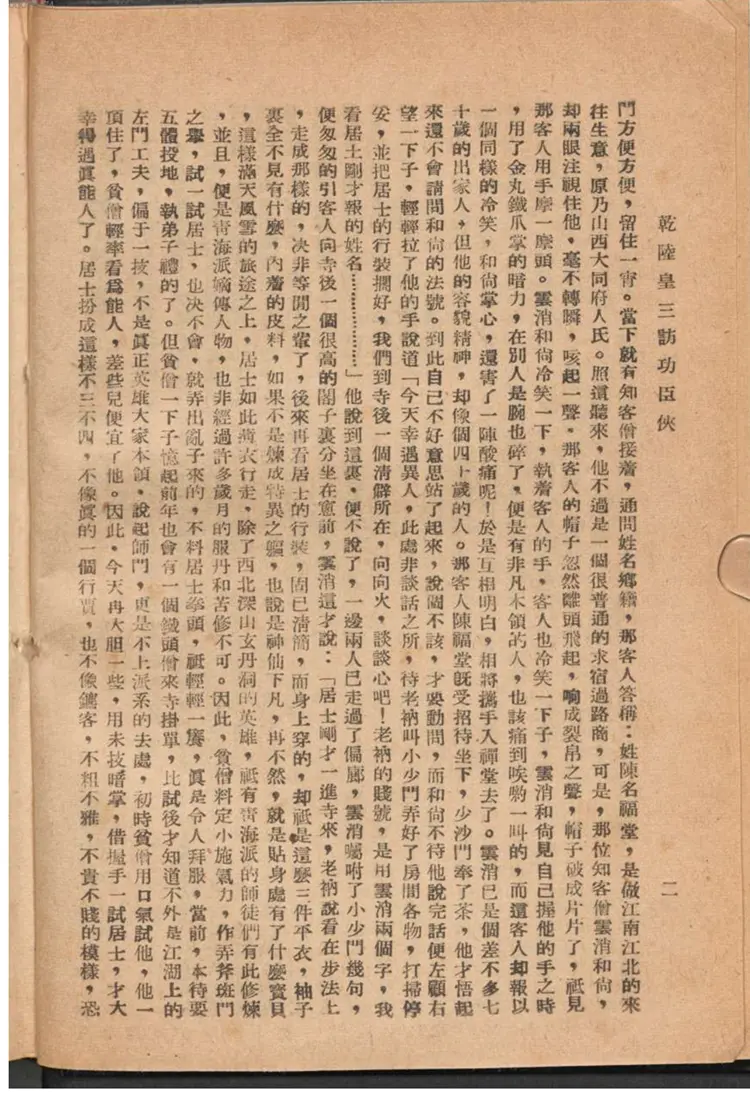 乾陸皇三訪功臣俠
二
門方便方便，留住一宵。當下就有知客僧接着，通問姓名鄉籍，那客人答稱：姓陳名福堂，是做江南江北的來
往生意，原乃山西大同府人氏。照這聽來，他不過是一個很普通的求宿過路商，可是，那位知客僧雲消和尙，
却兩眼注視住他，毫不轉瞬，咳起一聲。那客人的帽子忽然離頭飛起，响成裂帛之聲，帽子破成片片了，祗見
那客人用手摩一摩頭。雲消和尙冷笑一下，執着客人的手，客人也冷笑一下子，雲消和尙見自己握他的手之時
，用了金丸鐵爪掌的暗力，在別人是腕也碎了，便是有非凡本領的人，也該痛到唉喲一叫的，而這客人却報以
一個同樣的冷笑，和尙掌心，還害了一陣酸痛呢！於是互相明白，相將攜手入禪堂去了。雲消已是個差不多七
十歲的出家人，但他的容貌精神，却像個四十歲的人。那客人陳福堂旣受招待坐下，少沙門奉了茶，他才悟起
來還不會請問和尙的法號。到此自己不好意思站了起來，說聲不該，才要動問，而和尙不待他說完話便左顧右
望一下子，輕輕拉了他的手說道「今天幸遇異人，此處非談話之所，待老衲叫小少門弄好了房間各物，打掃停
妥，並把居士的行裝擱好，我們到寺後一個清僻所在，向向火，談談心吧！老衲的賤號，是用雲消兩個字，我
看居士剛才報的姓名………………」他說到這裏，便不說了，一邊兩人已走過了偏廊，雲消囑咐了小少門幾句，
便匆匆的引客人向寺後一個很高的閣子裏分坐在窻前，雲消這才說：「居士剛才一進寺來，老衲說看在步法上
，走成那樣的，决非等閒之輩了，後來再看居士的行裝，固已清簡，而身上穿的，却祗是這麽三件平衣，袖子
裏全不見有什麽，內着的皮料，如果不是煉成特異之軀，也說是神仙下凡，再不然，就是貼身處有了什麽寶貝
，這樣滿天風雪的旅途之上，居士如此衣行走，除了西北深山玄丹洞的英雄，祗有靑海派的師徒們有此修煉
，並且，便是靑海派嫡傳人物，也非經過許多歲月的服丹和苦修不可。因此，貧僧料定小施氣力，作弄斧班門
之舉，試一試居士，也决不會，就弄出亂子來的，不料居士拳頭，祗輕輕一，眞是令人拜服。當前，本待要
五體投地，執弟子禮的了。但貧僧一下子憶起前年也會有一個鐵頭僧來寺掛單，比試後才知道不外是江湖上的
左門工夫，偏于一技，不是眞正英雄大家本領，說起師門，更是不上派系的去處，初時貧僧用口氣試他，他一
頂住了，貧僧輕率看爲能人，差些兒便宜了他。因此，今天再大胆一些，用末技暗掌，借握手一試居士，才大
幸得遇眞能人了。居士扮成這樣不三不四，不像眞的一個行賈，也不像鑣客，不粗不雅，不貴不賤的模樣，恐